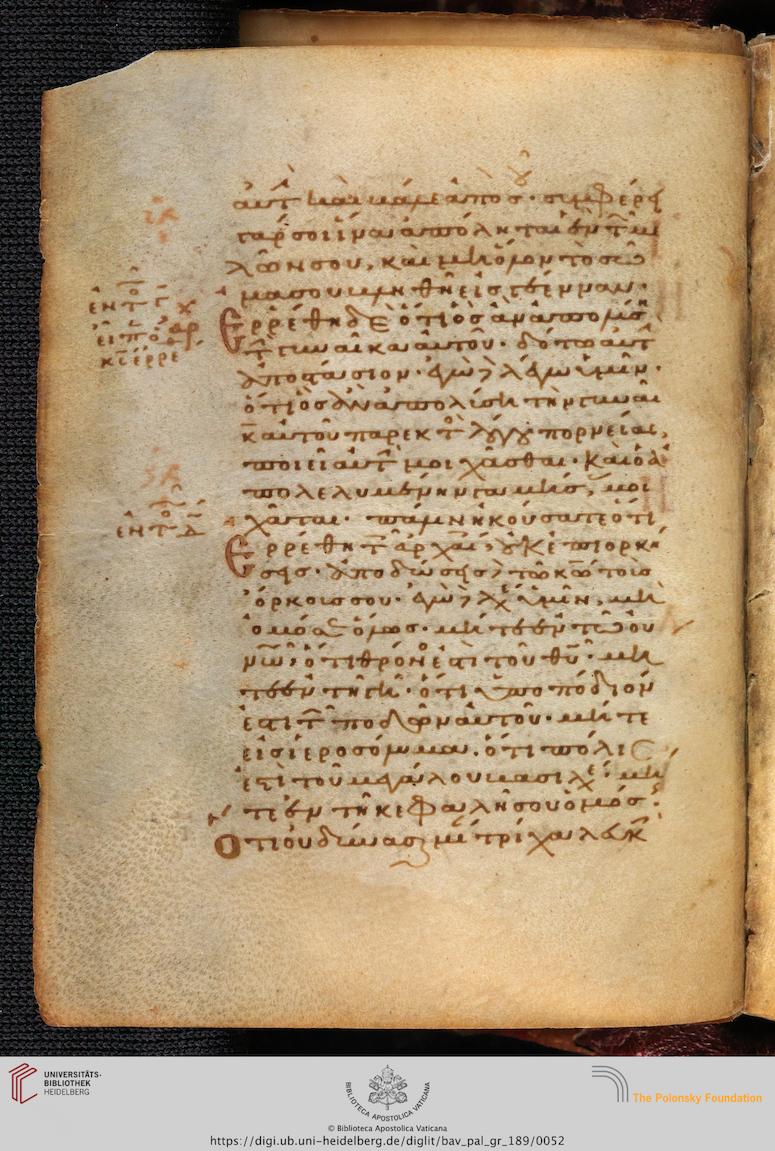 αὐτ καὶ βάλε ἀπὸ σοῦ· συμφέρει
γάρ σοι ἵνα ἀπόληται ἓν τ μ
λῶν σου, καὶ μὴ ὅλον τὸ σῶ
μα σου βληθῆ εἰς γέενναν·
Ἐρρέθη δὲ ὅτι ὃς ἂν ἀπολύσ
τ γυναῖκα αὐτοῦ· δότω αὐτ
ἀποστάσιον· ἐγὼ λέγω ὑμῖν·
ὅτι ὃς ἂν ἀπολύση τὴν γυναῖ
κα αὐτοῦ παρεκτ λόγου πορνείας,
ποιεῖ αὐτ μοιχᾶσθαι· καὶ ὁ ἀ
πολελυμένην γαμήσ, μοι
χᾶται· πάλιν ἠκούσατε ὅτι
Ἐρρέθη τ ἀρχαί οὐκ ἐπιορκή
σεις· ἀποδώσεις τῶ κω τοὺς
ὅρκους σου· ἐγὼ λέγω ὑμῖν, μὴ
ὀμόσαι ὅλως· μήτε ἐν τῶ οὐ
νω, ὅτι θρόν ἐστὶ τοῦ θυ· μή
τε ἐν τῆ γῆ· ὅτι ὑποπόδιόν
ἐστι τ ποδῶν αὐτοῦ· μήτε
εἰς ἱεροσόλυμα· ὅτι πόλις
ἐστὶ τοῦ μεγάλου βασιλέ· μή
τε ἐν τῆ κεφαλῆ σου ὀμόσ·
Ὅτι οὐ δύνασαι μί τρίχα λευκ
UNIVERSITÄTS-
BIBLIOTHEK
HEIDELBERG
BIBLIOTECA APOSTOLICA VATICANA
The Polonsky Foundation
© Biblioteca Apostolica Vaticana
https://digi.ub.uni-heidelberg.de/diglit/bav_pal_gr_189/0052